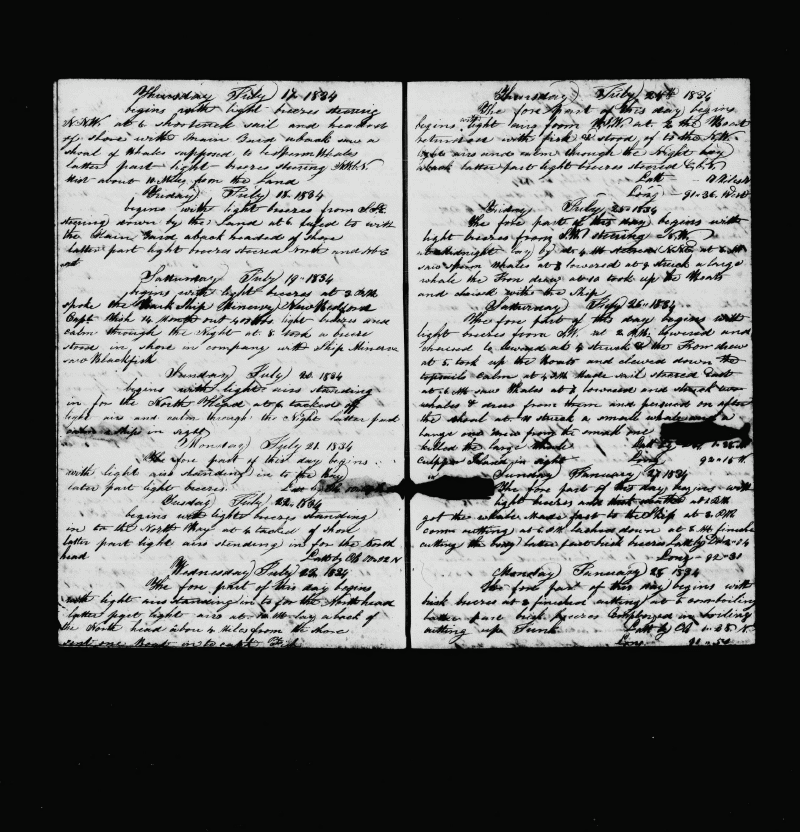 Thursday July 17 1834
begins with light breezes steering
N.N.W. at 6 shortened sail and headed
of shore with main Yard aback saw a
shoal of Whales supposed to be Sperm Whales
latter part light breezes steering
about miles from the Land
Friday July 18 1834
begins with light breezes from S.S.E.
steering down by the Land at 6 luled to with
the Main Yard aback headed of shore
latter part light breezes steered North and N b E
Saturday July 19 1834
begins with light breezes at 3 P.M.
spoke the Ship Minerva New Bedford
Capt 14 months light breezes and
calm through the Night at 8 took a breeze
stood in shore in company with Ship Minerva
saw Blackfish
Sunday July 20 1834
begins with light airs standing
in for the North Head at 6 tacked off
light airs and calm through the Night latter part
Ship in sight
Monday July 21 1834
The fore part of this day begins
with light airs standing in to the Bay
later part light breezes
Tusday July 22 1834
begins with light breezes standing
in to the North Bay at 6 tacked of shore
latter part light airs standing in for the North
head Latt by Ob
Wednesday July 23 1834
The fore part of this day begins
with light airs standing in to for the North head
latter part light airs at 10 AM lay aback of
the North head about 4 Miles from the shore
sent one Boat in to catch Fish
Thursday July 24th 1834
The fore part of this day begins
begins with light airs from W.S.W. at 6 the Boat
returned with fish & stood of to the N.W.
light airs and calm through the Night lay
aback latter part light breezes steered
Latt Miles N
Long 91-36 West
Friday July 25 1834
The fore part of this day begins with
light breezes from S.W. steering N.W.
at Midnight lay by at 4 AM steered at 6 AM
saw Sperm Whales at 8 lowered at 9 struck a large
whale the Iron drew also took up the Boats
and chased with the Ship
Saturday July 26 1834
The fore part of this day begins with
light breezes from S.W. at 2 P.M. lowered and
chased at 4 struck & the Iron drew
at 5 took up the Boats and clewed down the
topsails calm at 4 AM Made sail steered East
at 6 AM saw Whales at 8 lowered and struck two
whales & drew from them and persued on after
the shoal at 11 struck a small whale and a
large one from the small one
killed the large Whale Latt by
Culpper Island in sight Long 92-15 W
Sunday January 27 1834
The fore part of this day begins with
light breezes and at 2 PM
got the whale Made fast to the Ship at 3 PM
comm cutting at 6 PM lashed down at 8 AM finished
cutting the body latter part brisk breezes Latt by
Long 92-31
Monday January 28 1834
The fore part of this day begins with
brisk breezes at 3 finished cutting at 6 comm boiling
latter part brisk breezes Employed in boiling
cutting up Junk Latt by Ob
Long